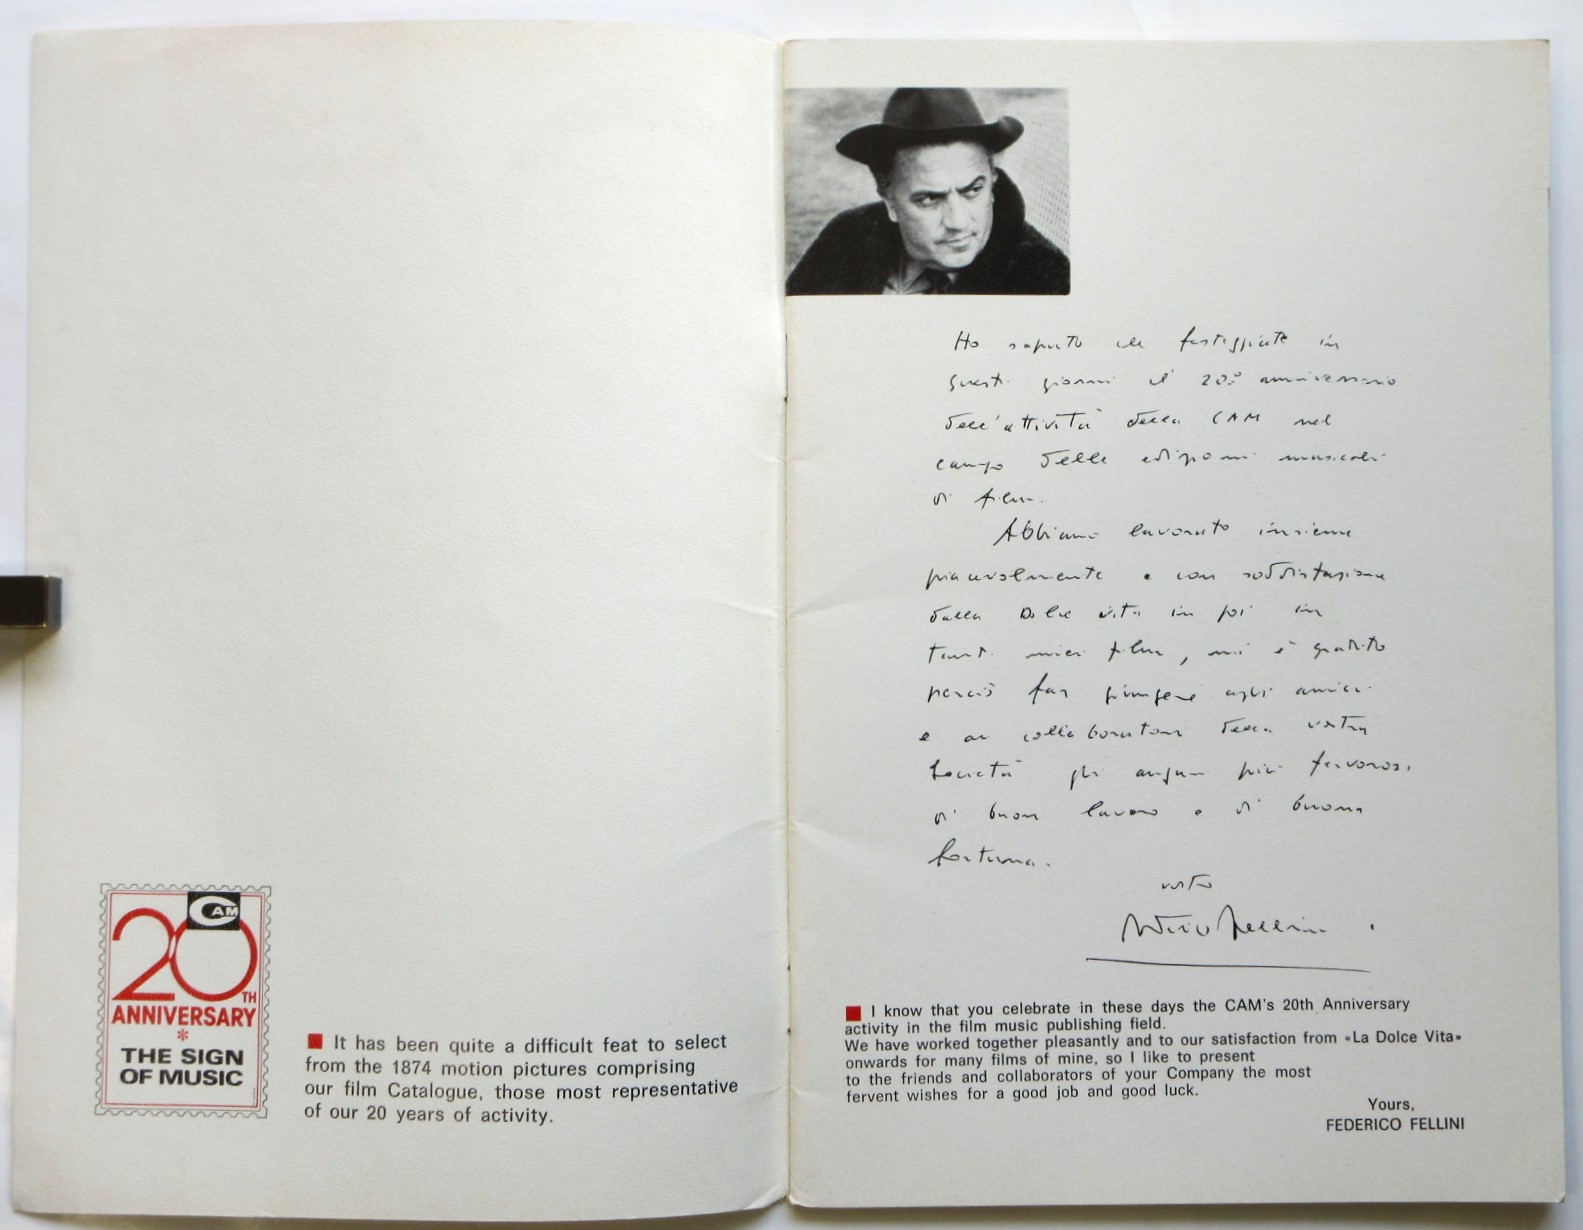 CAM
20TH
ANNIVERSARY
*
THE SIGN
OF MUSIC
It has been quite a difficult feat to select
from the 1874 motion pictures comprising
our film Catalogue, those most representative
of our 20 years of activity.
Ho saputo che festeggiate in
questi giorni il 20° anniversario
dell'attività della CAM nel
campo delle edizioni musicali
di film.
Abbiamo lavorato insieme
piacevolmente e con soddisfazione
dalla Dolce vita in poi in
tanti miei film, mi è gradito
perciò far giungere agli amici
e ai collaboratori della vostra
Società gli auguri più fervorosi
di buon lavoro e di buona
fortuna.
vostro
Federico Fellini
I know that you celebrate in these days the CAM's 20th Anniversary
activity in the film music publishing field.
We have worked together pleasantly and to our satisfaction from «La Dolce Vita»
onwards for many films of mine, so I like to present
to the friends and collaborators of your Company the most
fervent wishes for a good job and good luck.
Yours,
FEDERICO FELLINI